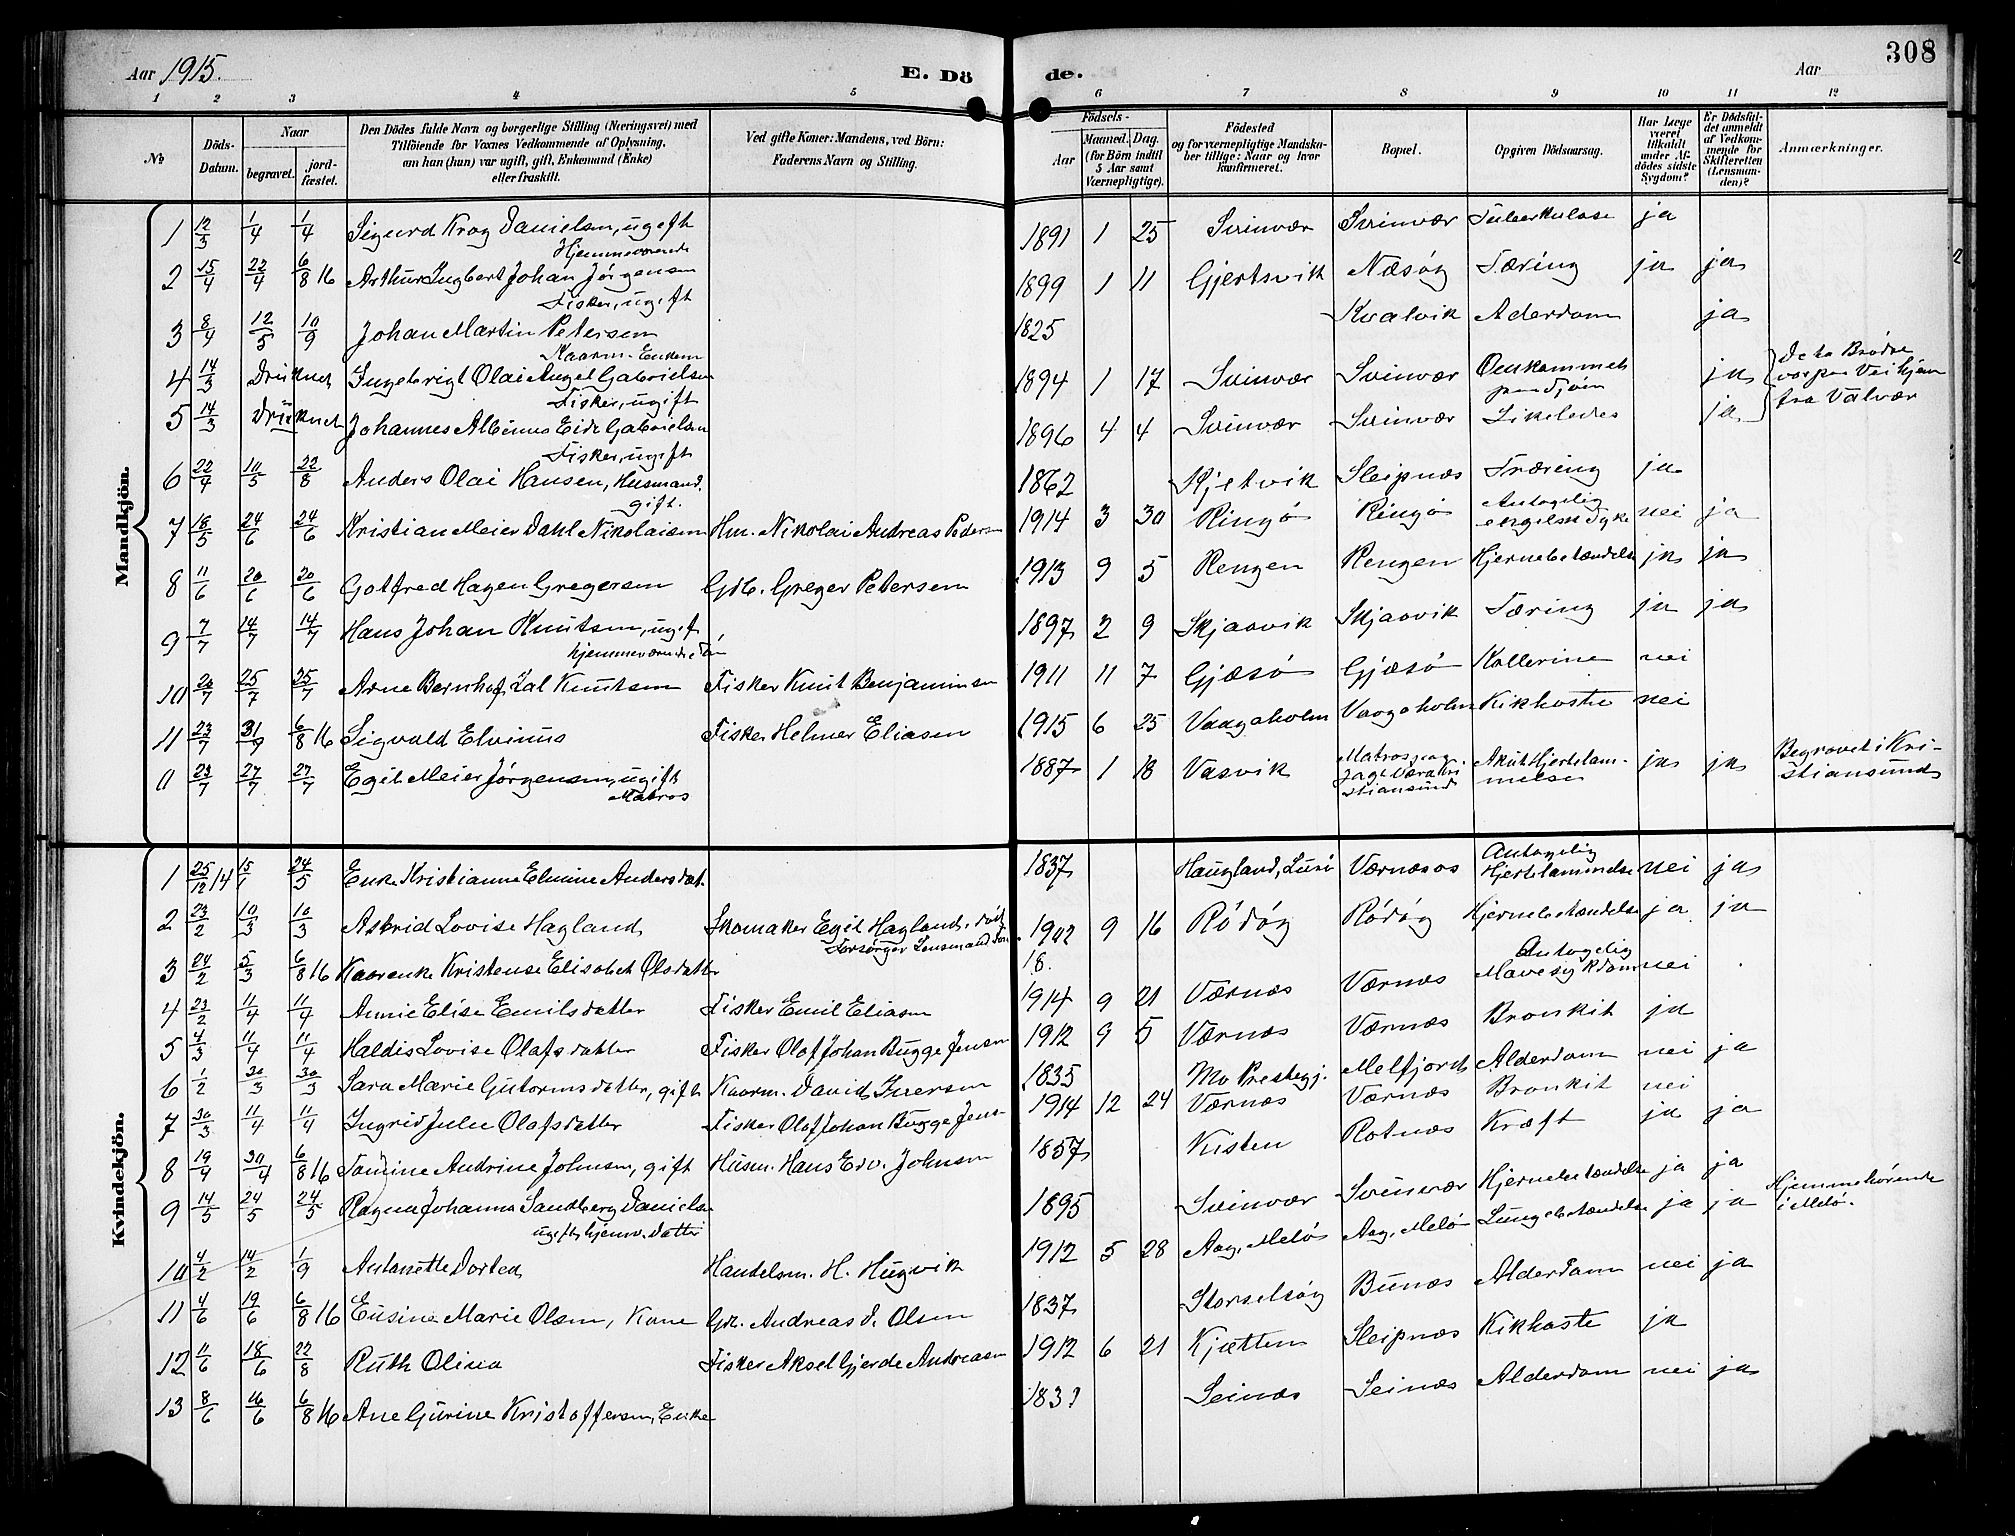 Aar 1915.
E. Dö
de.
Aar
308
1 2 3 4 5 6 7 8 9 10 11 12
№
Döds-Datum.
Naar
begravet.
jord-fæstet.
Den Dödes fulde Navn og borgerlige Stilling (Næringsvei) med
Tilföiende for Voxnes Vedkommende af Oplysning,
om han (hun) var ugift, gift, Enkemand (Enke)
eller fraskilt.
Ved gifte Koner: Mandens, ved Börn:
Faderens Navn og Stilling.
Födsels-
Aar
Maaned. Dag.
(for Börn indtil
5 Aar samt
Værnepligtige).
Födested
og for værnepligtige Mandska-
ber tillige: Naar og hvor
konfirmeret.
Bopæl.
Opgiven Dödsaarsag.
Har Læge
været
tilkaldt
under Af-
dödes sidste
Sygdom?
Er Dödsfal-
det anmeldt
af Vedkom-
mende for
Skifteretten
(Lensman-
den)?
Anmærkninger.
Mandkjön.
1 12/3 1/4 1/4 Sigurd Krog Danielsen, ugift 1891 1 25 Svinvær Svinvær Tuberkulose ja
Hjemmeværende
2 15/4 22/4 6/8 16 Arthur Ingbert Johan Jørgensen 1899 1 11 Gjertsvik Næsøy Tæring ja ja
Fisker, ugift
3 8/4 12/5 10/9 Johan Martin Petersen 1825 Kvalvik Alderdom ja
Kaarm. Enkem
4 14/3 Druknet Ingebrigt Olai Angel Gabrielsen 1894 1 17 Svinvær Svinvær Omkommet paa Sjøen ja
Fisker, ugift
De to Brødre
var paa Vei hjem
fra Valvær
5 14/3 Druknet Johannes Albinus Eide Gabrielsen 1896 4 4 Svinvær Svinvær Likeledes ja
Fisker, ugift
6 22/4 10/5 22/8 Anders Olai Hansen, Husmand. 1862 Kjetvik Sleipnæs Tæring ja
gift.
7 18/5 24/6 24/6 Kristian Meier Dahl Nikolaisen Hm. Nikolai Andreas Pedersen 1914 3 30 Ringø Ringø Antagelig engelsk Syke nei ja
8 11/6 20/6 20/6 Gotfred Hagen Gregersen Gdb. Greger Petersen 1913 9 5 Rengen Rengen Hjernebetændelse ja ja
9 7/7 14/7 14/7 Hans Johan Knutsen, ugift 1897 2 9 Skjaavik Skjaavik Tæring ja ja
hjemmeværende Søn
10 20/7 25/7 25/7 Arne Bernhof Zal Knutsen Fisker Knut Benjaminsen 1911 11 7 Gjæsø Gjæsø Kollerine nei
11 23/7 31/7 6/8 16 Sigvald Elvinus Fisker Helmer Eliasen 1915 6 25 Vaagaholm Vaagaholm Kikhoste nei
11 23/7 27/7 27/7 Egil Meier Jørgensen, ugift 1887 1 18 Vasvik Matros paa Jagt Væra Kristiansund Akut Hjertelammelse ja ja
Matros
Begravet i Kri-
stiansund
Kvindekjön.
1 25/12 14 15/1 24/5 Enke Kristianne Elmine Andersdat. 1837 Haugland, Lurø Værnæsos Antagelig Hjertelammelse nei ja
2 23/2 10/3 10/3 Astrid Lovise Hagland Skomaker Egil Hagland, død 1902 9 16 Rødøy Rødøy Hjernebetændelse ja ja
Forsørger Lensmand
3 24/2 5/3 6/8 16 Kaarenke Kristense Elisabet Olsdatter 18. Antagelig
4 23/2 11/4 11/4 Annie Elise Emilsdatter Fisker Emil Eliasen 1914 9 21 Værnæs Værnæs Mavesykdom nei
5 4/3 11/4 11/4 Haldis Lovise Olafsdatter Fisker Olaf Johan Bugge Jensen 1912 9 5 Værnæs Værnæs Bronkit ja
6 1/2 30/3 30/3 Sara Marie Gutormsdatter, gift Kaarm. David Iversen 1835 Mo Prestegj. Melfjord Alderdom nei ja
7 30/3 11/4 11/4 Ingrid Julie Olafsdatter Fisker Olaf Johan Bugge Jens- 1914 12 24 Værnæs Værnæs Bronkit nei
8 19/4 30/4 6/8 16 Andrine Johnsen, gift Husm. Hans Edv. Johnsen 1857 Kisten Rotnæs Kræft ja ja
9 14/5 24/5 24/5 Ragna Johanna Sandberg Daniels 1895 Svinvær Svinvær Hjernebetændelse ja ja
ugift, hjemv. Datter
10 4/2 14/2 1/9 Antonette Dortea Handelsm. H. Hugvik 1912 5 28 Aag, Meløs Aag, Melø Lungebetændelse ja ja
Hjemmehørende
i Melø.
11 4/6 19/6 6/8 16 Eusine Marie Olsen, Kone Gdb. Andreas J. Olsen 1837 Storselsøy Bunæs Alderdom nei ja
12 11/6 18/6 22/8 Ruth Olina Fisker Aksel Gjerde Andreasen 1912 6 21 Kjætten Sleipnæs Kikhoste ja
13 8/6 16/6 6/8 16 Ane Gurine Kristoffersen, Enke 1831 Seinæs Seinæs Alderdom nei ja